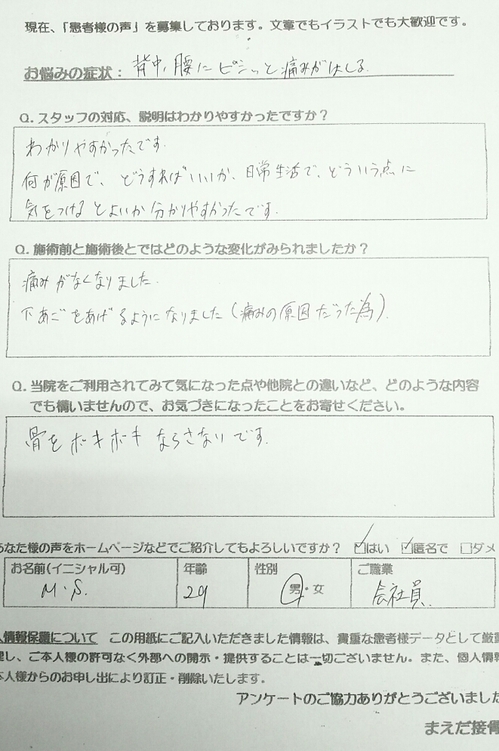 現在、「患者様の声」を募集しております。文章でもイラストでも大歓迎です。
お悩みの症状： 背中、腰にビシッと痛みがはしる
Q. スタッフの対応、説明はわかりやすかったですか？
わかりやすかったです。
何が原因で、どうすればいいか、日常生活で、どういう点に
気をつけるとよいか分かりやすかったです。
Q. 施術前と施術後とではどのような変化がみられましたか？
痛みがなくなりました。
下あごをあげるようになりました（痛みの原因だった為）.
Q. 当院をご利用されてみて気になった点や他院との違いなど、どのような内容
でも構いませんので、お気づきになったことをお寄せください。
骨をボキボキならさないです。
あなた様の声をホームページなどでご紹介してもよろしいですか？ ☑はい ☑匿名で □ダメ
お名前(イニシャル可) 年齢 性別 ご職業
M.S. 29 男・女 会社員
人情報保護について この用紙にご記入いただきました情報は、貴重な患者様データとして厳
理し、ご本人様の許可なく外部への開示・提供することは一切ございません。また、個人情報
本人様からのお申し出により訂正・削除いたします。
アンケートのご協力ありがとうございました
まえだ接骨